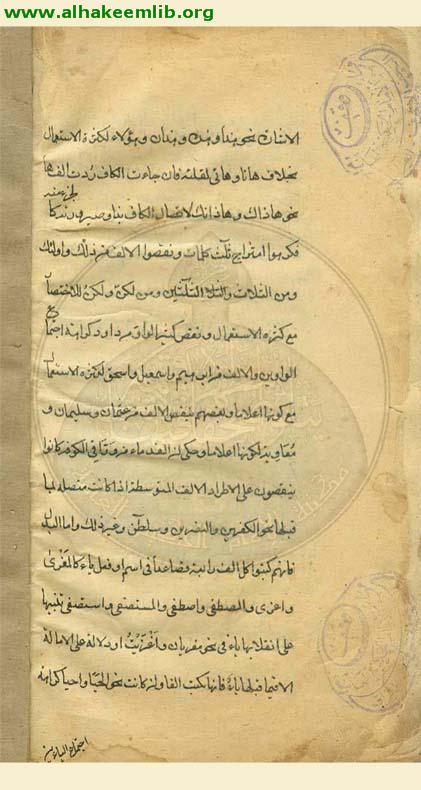 www.alhakeemlib.org
الاشارة نحو هذا وهذه وهذان وهؤلاء لكثرة الاستعمال
بخلاف هاتا وهاتى لقلته فان جاءت الكاف ردت الف ها
نحو هاذاك وهاذانك لاتصال الكاف بذا وصيرورته كالجزء منه
فكرهوا امتزاج ثلث كلمات ونقصوا الالف من ذلك واولئك
ومن الثلاث والثلثين ومن لكن ولكن للاختصار
مع كثرة الاستعمال ونقص كثير الواو من داود كراهة اجتماع
الواوين والالف من ابرهيم واسمعيل واسحق لكثرة الاستعمال
مع كونها اعلاما وبعضهم ينقص الالف من عثمان وسليمان و
معاوية لكونها اعلاما وحكى ان القدماء من وراقى الكوفة كانوا
ينقصون على الاطراد الالف المتوسطة اذا كانت متصلة بما
قبلها نحو الكفرين والنصرين وسلطن وغير ذلك واما البدل
فانهم كتبوا كل الف رابعة فصاعدا في اسم او فعل ياء كالمغزى
واغزى والمصطفى واصطفى والمستصفى واستصفى تنبيها
على انقلابها ياء في نحو مغزيان واغزيت او دلالة على الامالة
الا فيما قبلها ياء فانها تكتب الفا وان كانت نحو المحيا واحيا كراهة
اجتماع اليائين